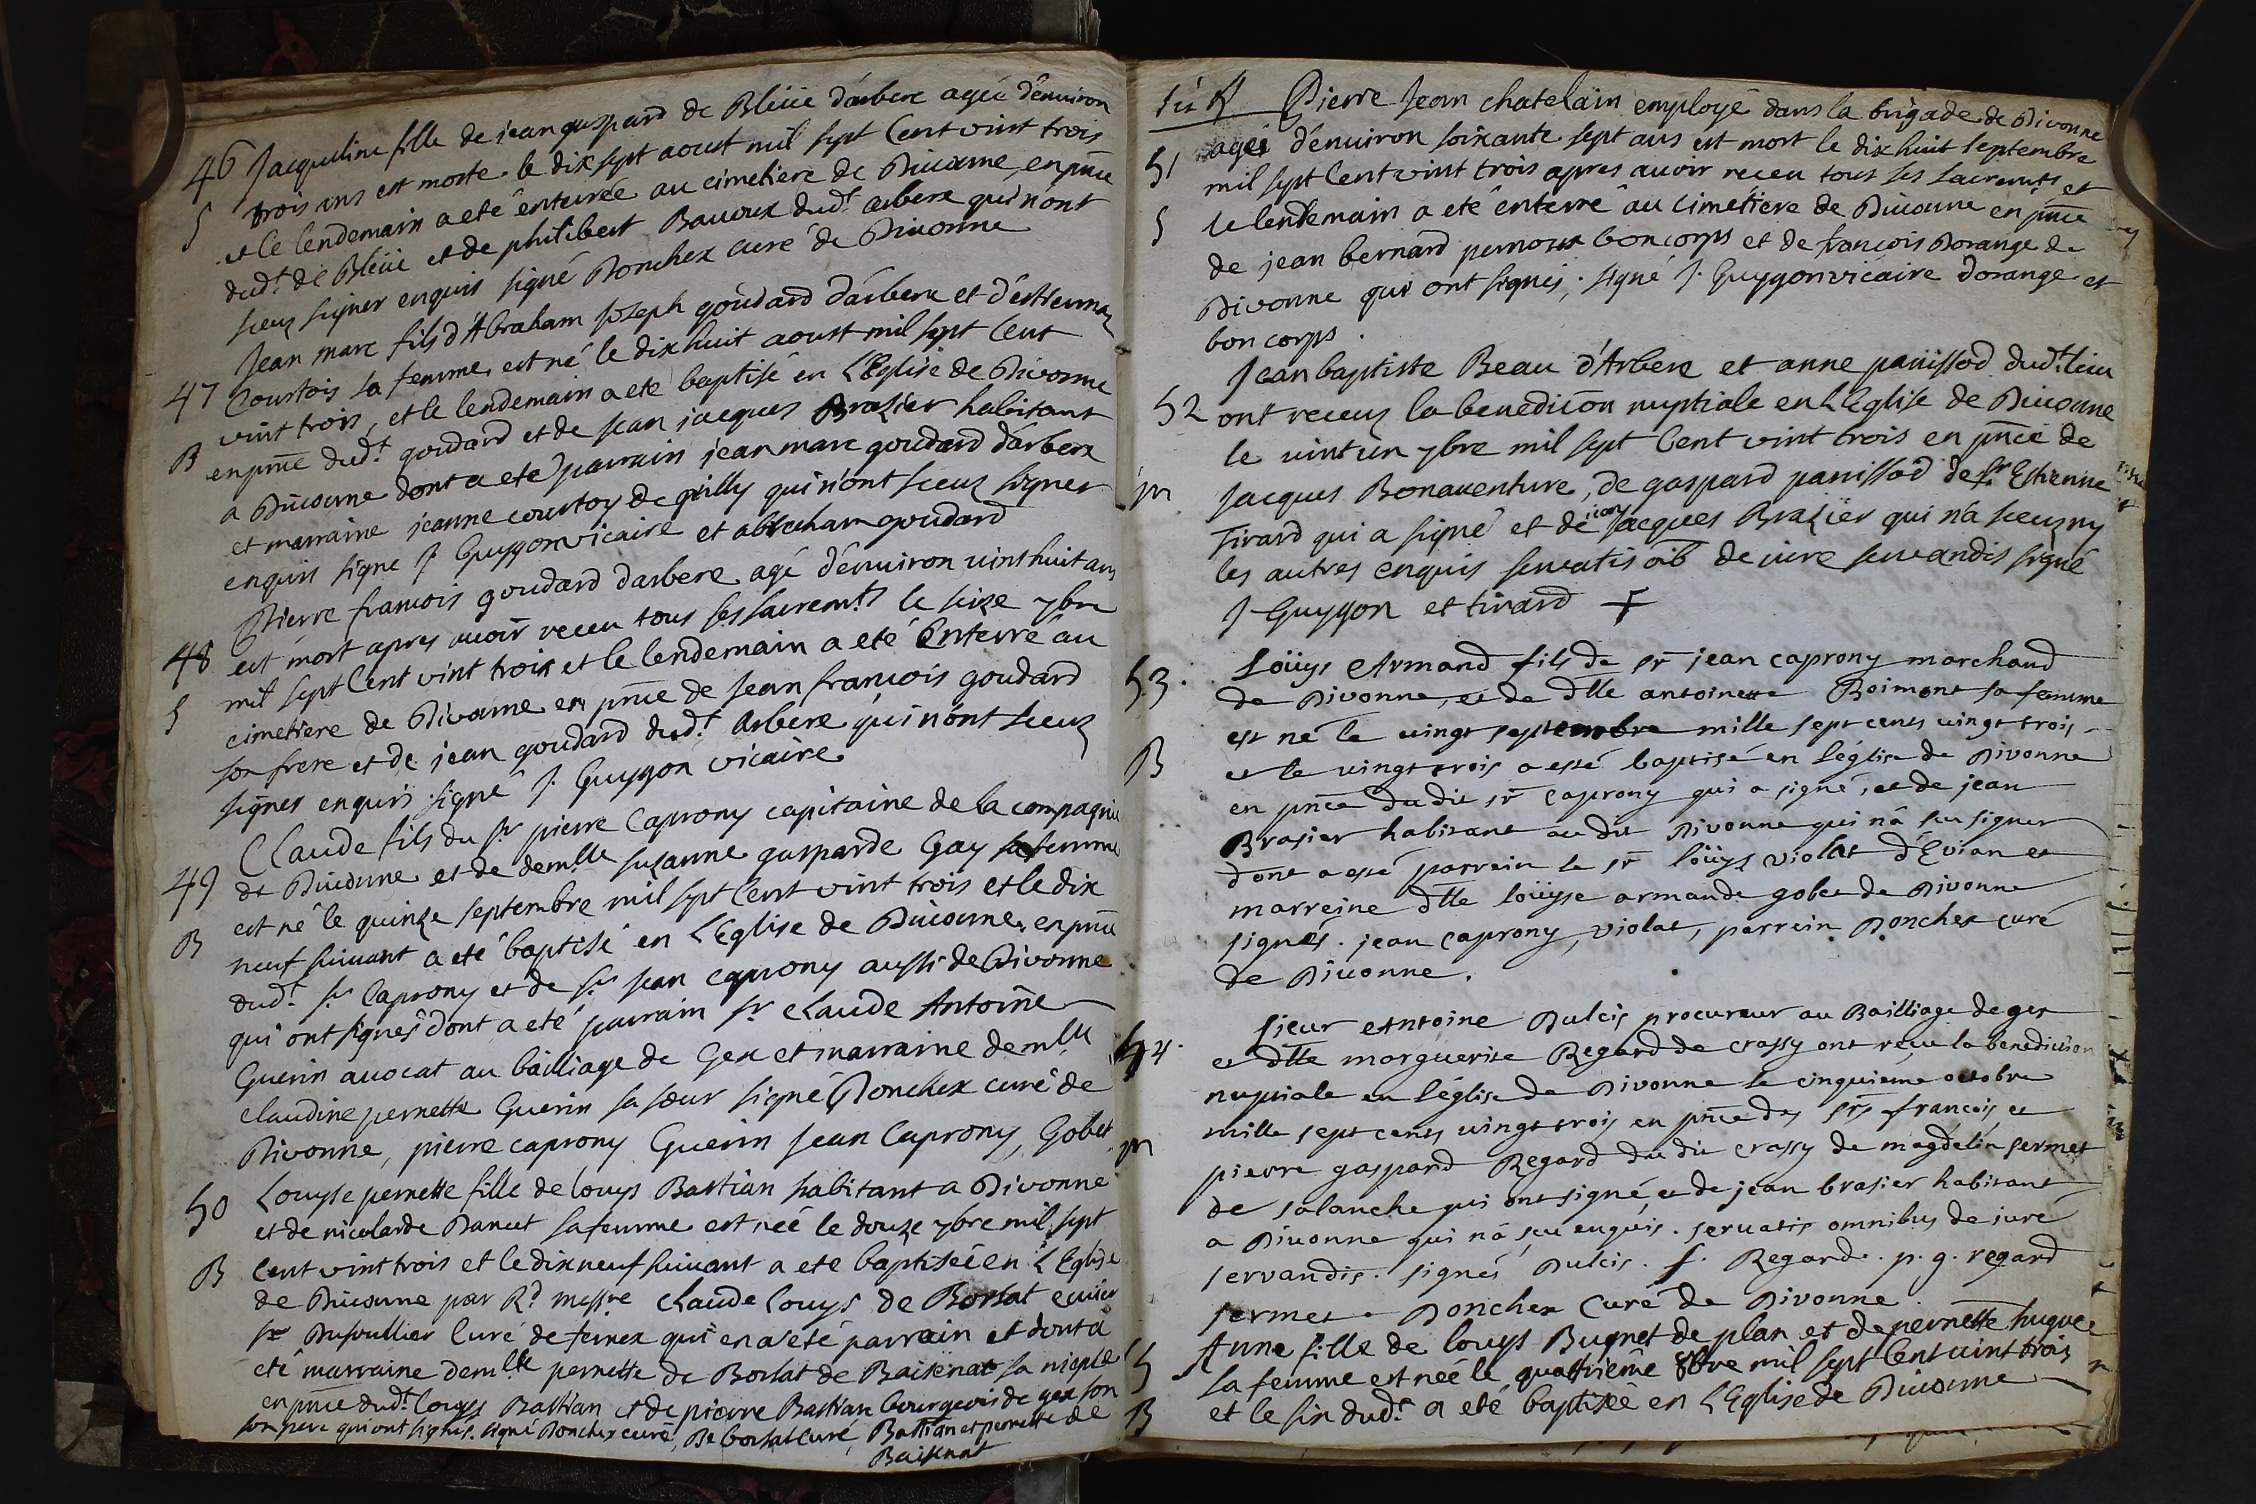 46 Jacqueline fille de jean gaspard de Bléiie d'arbere agée d'enuiron
trois ans est morte le dix sept aoust mil sept Cent vint trois
S et le lendemain a eté enterrée au cimetiere de Diuonne en pnce
dud.t de Bléiie et de philibert Bauoux dud.t arbere qui n'ont
sceuz signer enquis signé Ponchex curé de Diuonne
Jean marc fils d'Abraham Joseph goudard d'arbere et d'estiennaz
47 Courtois sa femme, est né le dix huit aoust mil sept Cent
vint trois, et le lendemain a eté baptisé en L'Eglise de Divonne
B en pnce dud.t goudard et de jean jacques Brazier habitant
a Diuonne dont a eté parrain jean marc goudard d'arbere
et marraine jeanne courtoy de qui n'ont sceuz signer
enquis signé J. Guygon vicaire et abraham goudard
Pierre francois goudard d'arbere agé d'enuiron vint huit ans
48 est mort apres auoir receu tous ses sacrem.ts le seize 7bre
mil sept Cent vint trois et le lendemain a eté Enterré au
S cimetiere de Diuonne en pnce de Jean francois goudard
son frere et de jean goudard dud.t Arbere qui n'ont sceuz
signer enquis signé J. Guygon vicaire
Claude fils du Sr pierre Caprony capitaine de la compagnie
49 de Diuonne et de dem.lle suzanne gasparde Gay sa femme
est né le quinze septembre mil sept Cent vint trois et le dix
B neuf suiuant a eté baptisé en L'Eglise de Diuonne, en pnce
dud.t Sr Caprony et de Sr jean caprony aussi de Divonne
qui ont signés dont a eté parrain Sr claude Antoine
Guerin auocat au bailliage de Gex et marraine dem.lle
claudine pernette Guerin sa sœur signé Ponchex curé de
Divonne, pierre caprony Guerin Jean Caprony, Gobet
50 Louyse pernette fille de louys Bastian habitant a Divonne
et de nicolarde Dancet sa femme est née le douze 7bre mil sept
B Cent vint trois et le dix neuf suiuant a eté baptisée en L'Eglise
de Diuonne par Rd messre claude louys de Borsat ecuier
Sr Curé de fernex qui en a eté parrain et dont a
eté marraine dem.lle pernette de Borsat de Baisenat sa niepce
en pnce dud.t louys Bastian et de pierre Bastian bourgeois de gex son
son pere qui ont signés. signé Ponchex curé, De borsat Curé, Bastian et pernette de
Baisenat
Pierre Jean chatelain employé dans la brigade de Divonne
51 agé d'enuiron soixante sept ans est mort le dix huit septembre
mil sept Cent vint trois apres auoir receu tous ses sacremts et
S le lendemain a eté enterré au Cimétiere de Diuonne en pnce
de jean bernard pernoux boncorps et de francois Dorange de
Divonne qui ont signés, signé J. Guygon vicaire dorange et
bon corps.
Jean baptiste Beau d'Arbere et anne paniissod dud.t lieu
52 ont receuz la benediction nuptiale en L'Eglise de Diuonne
le vint un 7bre mil sept Cent vint trois en pnce de
m Jacques Bonauenture, de gaspard panissod de Sr Estienne
Tirard qui a signé et de jean Jacques Brazier qui n'a sceu ny
les autres enquis seruatis oib de iure seruandis signé
J Guygon et tirard
53. Loüys Armand fils de Sr jean caprony marchand
de Divonne, et de dlle antoinette Boimont sa femme
est né le vingt septembre mille sept cents vingt trois
B et le vingt trois a esté baptisé en l'église de Divonne
en pnce du dit Sr Caprony qui a signé, et de jean
Brasier habitant au dit Divonne qui n'a sceu signer
dont a esté parrein le Sr loüys violat d'Evian et
marreine dlle loüyse armande gobet de Divonne
signés. jean caprony, violat, parrein Ponchex curé
de Diuonne.
54. Sieur Antoine Dulcis procureur au Bailliage de gex
et dlle marguerite Regard de crassy ont reçu la benediction
nuptiale en l'église de Divonne le cinquieme octobre
mille sept cents vingt trois en pnce des Srs francois et
m pierre gaspard Regard du dit crassy de magdelin sermet
de salanche qui ont signé et de jean brasier habitant
a Diuonne qui n'a sceu enquis. seruatis omnibus de iure
servandis. signés Dulcis. f. Regard. p. g. regard
sermet. Ponchex Curé de Divonne
Anne fille de louys Bugnet de plan et de pernette huguet
sa femme est née le quatrieme 8bre mil sept Cent vint trois
B et le six dud.t a eté baptisée en L'Eglise de Diuonne